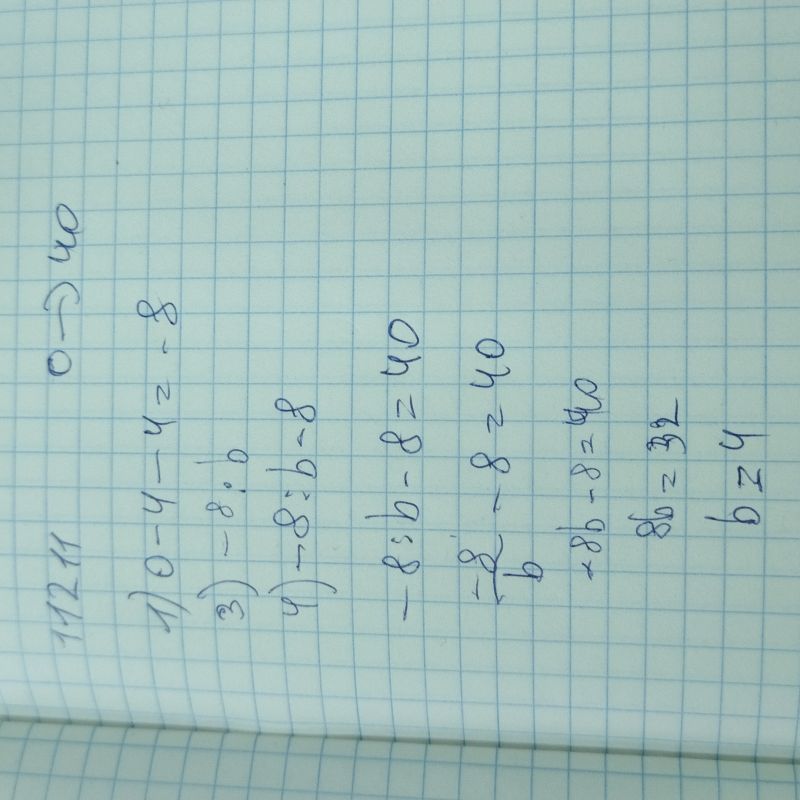 11211 0→40
1) 0-4-4=-8
3) -8:b
4) -8:b-8
-8:b-8=40
-8/b -8=40
+8b-8=40
8b=32
b=4